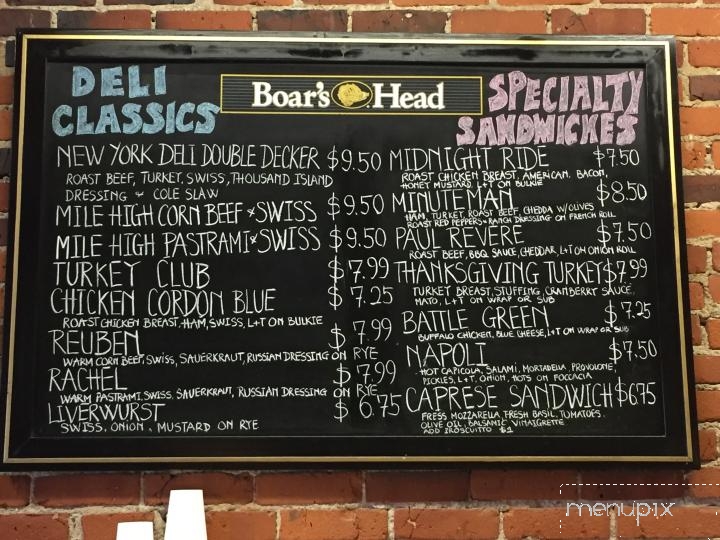 DELI
CLASSICS
Boar's Head
SPECIALTY
SANDWICHES
NEW YORK DELI DOUBLE DECKER $9.50
ROAST BEEF, TURKEY, SWISS, THOUSAND ISLAND
DRESSING & COLE SLAW
MILE HIGH CORN BEEF & SWISS $9.50
MILE HIGH PASTRAMI & SWISS $9.50
TURKEY CLUB $7.99
CHICKEN CORDON BLUE $7.25
ROAST CHICKEN BREAST, HAM, SWISS, L+T ON BULKIE
REUBEN $7.99
WARM CORN BEEF, SWISS, SAUERKRAUT, RUSSIAN DRESSING ON RYE
RACHEL $7.99
WARM PASTRAMI, SWISS, SAUERKRAUT, RUSSIAN DRESSING ON RYE
LIVERWURST $6.75
SWISS, ONION, MUSTARD ON RYE
MIDNIGHT RIDE $7.50
ROAST CHICKEN BREAST, AMERICAN, BACON,
HONEY MUSTARD, L+T ON BULKIE
MINUTEMAN $8.50
HAM, TURKEY, ROAST BEEF, CHEDDA W/OLIVES
ROAST RED PEPPERS & RANCH DRESSING ON FRENCH ROLL
PAUL REVERE $7.50
ROAST BEEF, BBQ SAUCE, CHEDDAR, L+T ON ONION ROLL
THANKSGIVING TURKEY $7.99
TURKEY BREAST, STUFFING, CRANBERRY SAUCE,
MAYO, L+T ON WRAP OR SUB
BATTLE GREEN $7.25
BUFFALO CHICKEN, BLUE CHEESE, L+T ON WRAP OR SUB
NAPOLI $7.50
HOT CAPICOLA, SALAMI, MORTADELLA, PROVOLONE,
PICKLES, L+T, ONION, HOTS ON FOCCACIA
CAPRESE SANDWICH $6.75
FRESS MOZZARELLA, FRESH BASIL, TOMATOES,
OLIVE OIL, BALSAMIC VINAIGRETTE
ADD PROSCUITTO $1
menupix